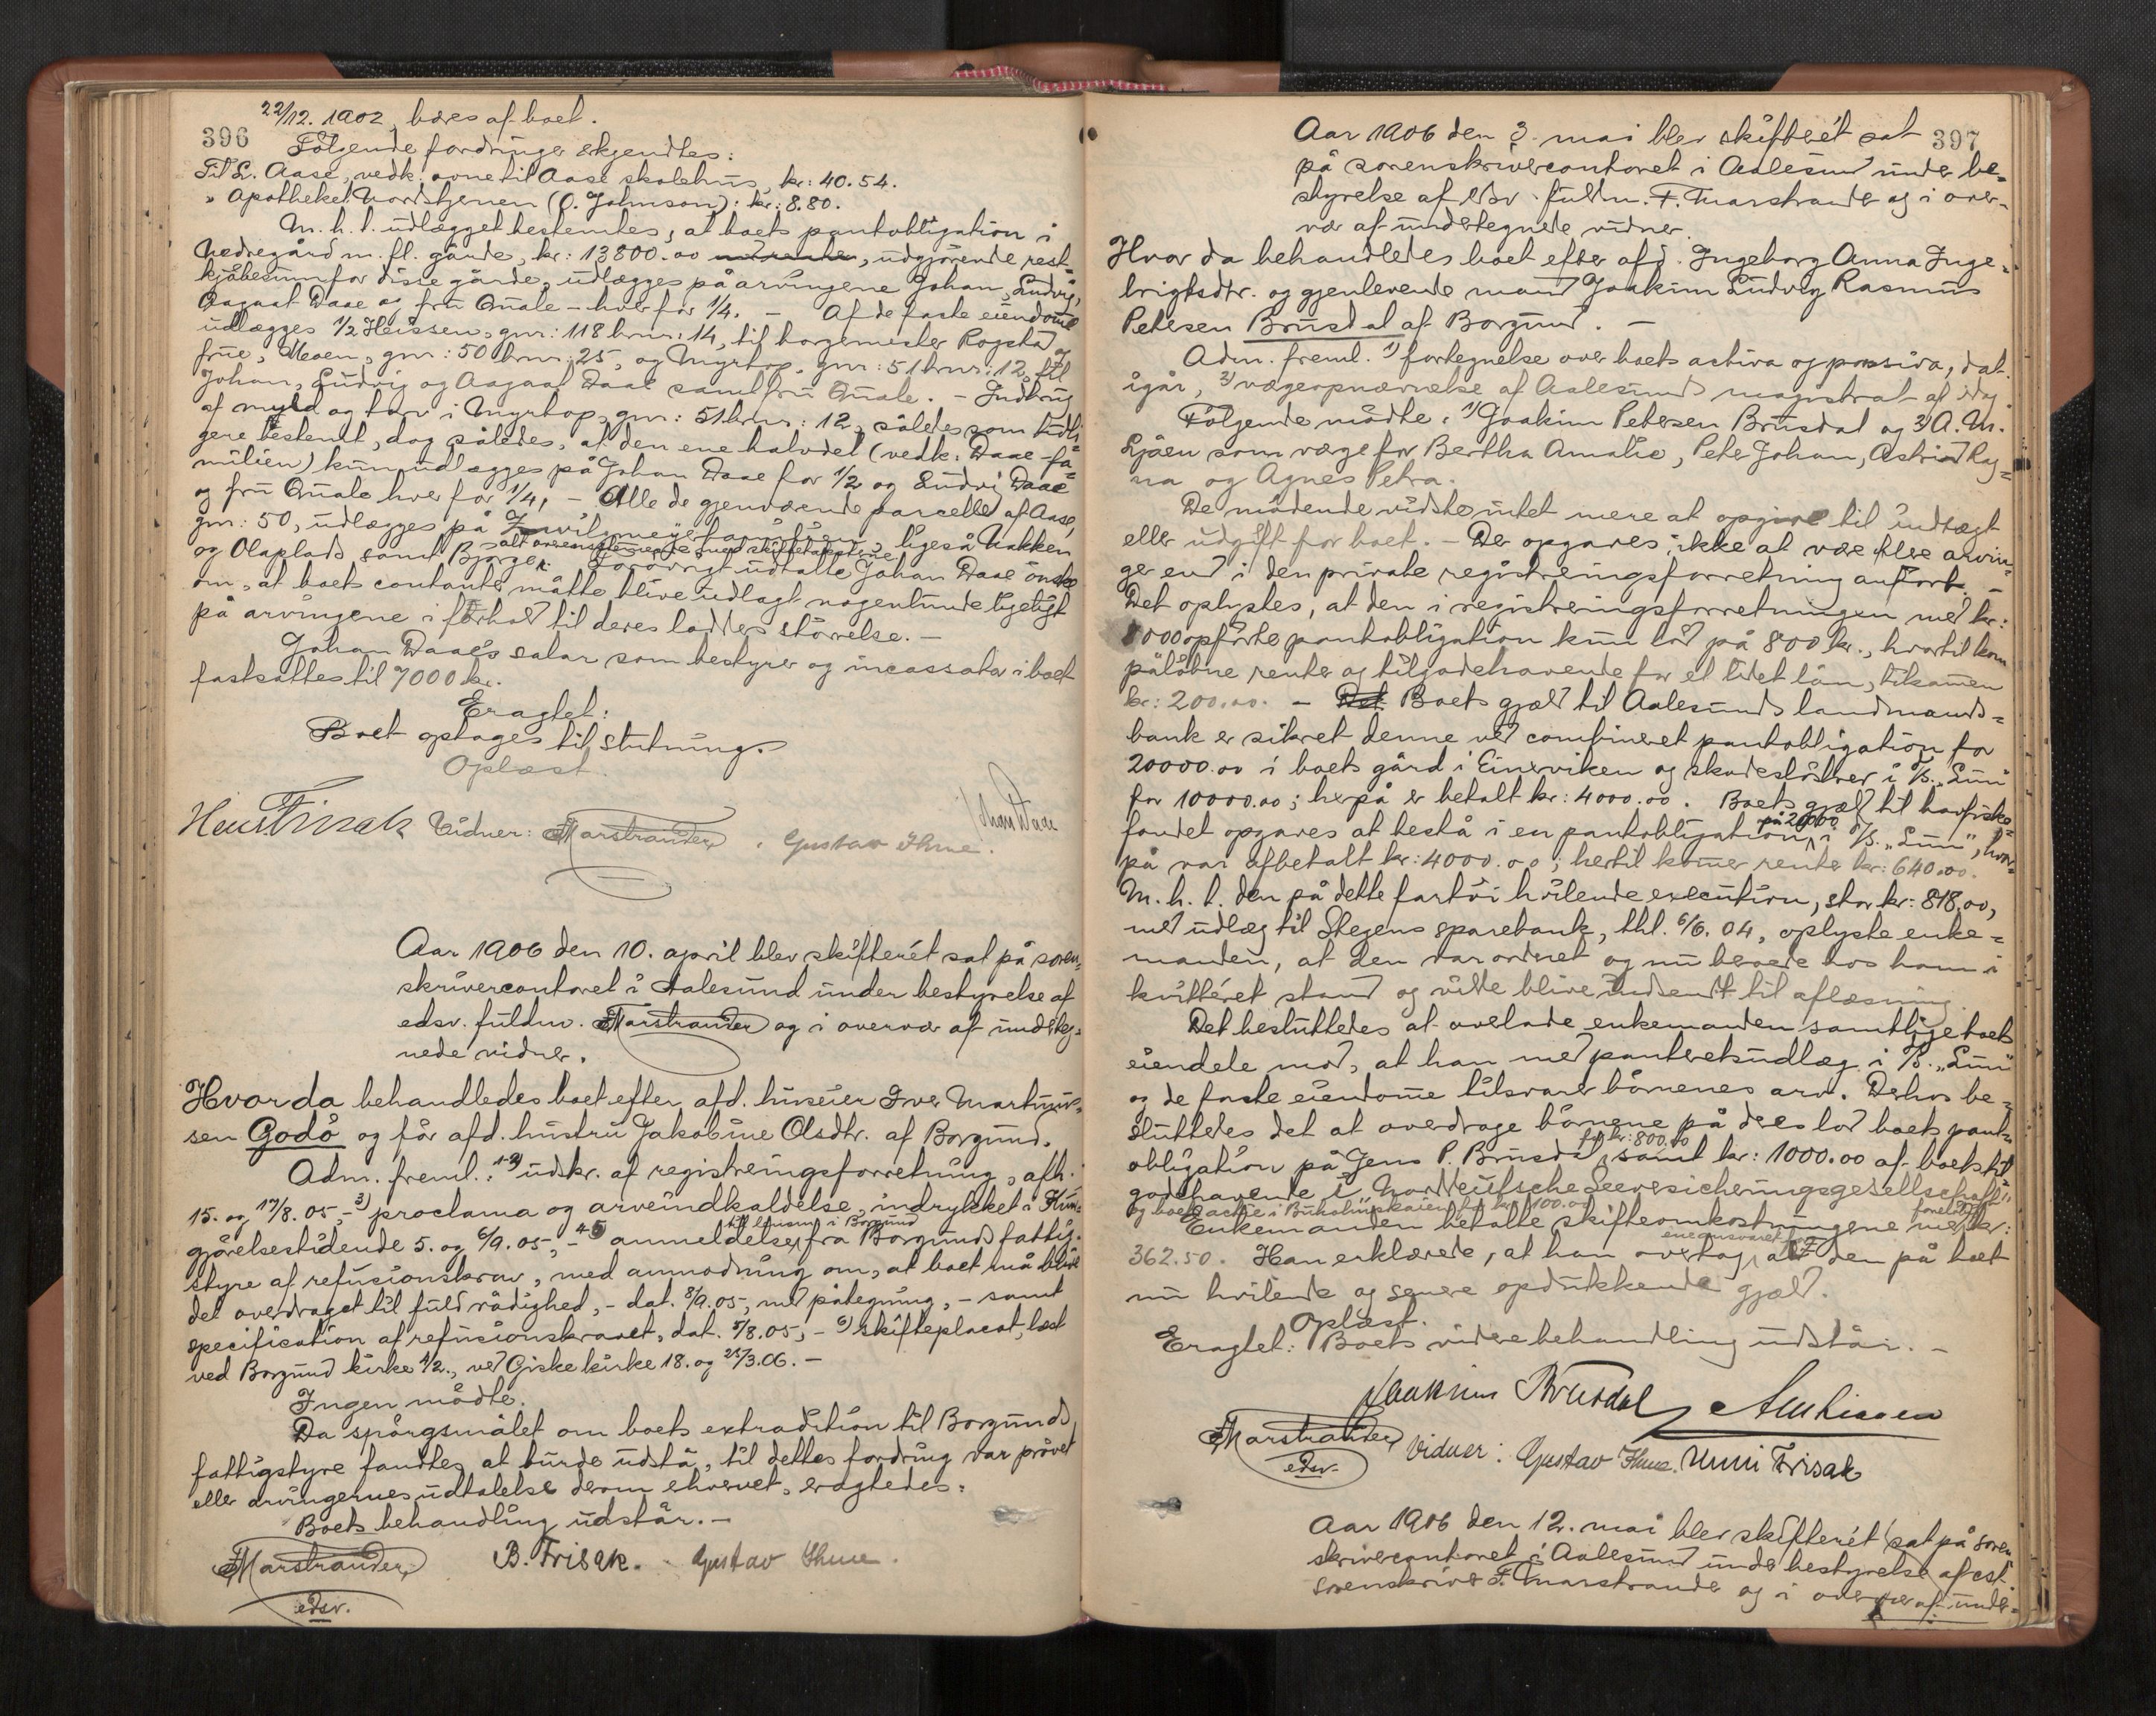 22/12. 1902, bæres af boet.
396
Følgende fordringer erkjendtes:
Til L. Aase, vedk. ovne til Aase skolehus, kr: 40.54.
" Apotheket Nordstjernen (O. Johnson): kr: 8.80.
M. h. t. udlægget bestemtes, at boets pantobligation i
Nedregård m. fl. gårde, kr: 13800.00, udgjørende rest-
kjøbesum for disse gårde, udlægges på arvingene Johan, Ludvig,
Aagaat Daae og fru Quale – hver for 1/4. – Af de faste eiendome
udlægges 1/2 Heissen, gnr: 118 brnr: 14, til borgemester Rogstad
frue, Moen, gnr: 50 brnr: 25, og Myrtop, gnr: 51 brnr: 12, til
Johan, Ludvig og Aagaat Daae samt fru Quale. –
af myld og torv i Myrtop, gnr: 51 brnr: 12, således som tidli-
gere bestemt, dog således, at den ene halvdel (vedk: Daae-fa-
milien) kun udlægges på Johan Daae for 1/2 og Ludvig Daae
og fru Quale hver for 1/4, – Alle de gjenværende parceller af Aase,
gnr: 50, udlægges på ligeså Nakken
alt overensstemmende med skiftetaksterne
og Olaplads samt Bjørge. Forøvrigt udtalte Johan Daae ønske
om, at boets contanter måtte blive udlagt nogenlunde ligeligt
på arvingene i forhold til deres lodders størrelse. –
Johan Daae's salær som bestyrer og incassator i boet
fastsattes til 7000 kr.
Eragtet:
Boet optages til slutning.
Oplæst.
Johan Daae
Vidner: FMarstrander. Gustav Thue.
Aar 1906 den 10. april blev skifterét sat på soren-
skrivercontoret i Aalesund under bestyrelse af
edsv. fuldm. FMarstrander og i overvær af undteg-
nede vidner.
Hvor da behandledes boet efter afd. huseier Iver Martinus-
sen Godø og før afd. hustru Jakobine Olsdtr. af Borgund.
Adm. freml.: 1-2) udskr. af registreringsforretning, afh.
15. og 17/8. 05, – 3) proclama og arveindkaldelse, indrykket i Kun-
gjørelsestidende 5. og 6/9. 05, – 4-5) anmeldelse fra Borgunds fattig-
styre af refusionskrav, med anmodning om, at boet må blive
det overdraget til fuld rådighed, – dat. 8/9. 05, med påtegning, – samt
specification af refusionskravet, dat. 5/8. 05, – 6) skifteplacat, læst
ved Borgund kirke 4/2., ved Giske kirke 18. og 25/3. 06. –
Ingen mødte.
Da spørgsmålet om boets extradition til Borgunds
fattigstyre fandtes at burde udstå, til dettes fordring var prøvet
eller arvingernes udtalelse derom ehvervet, eragtedes:
Boets behandling udstår. –
FMarstrander B. Frisak. Gustav Thue.
edsv.
397
Aar 1906 den 3. mai blev skifterét sat
på sorenskrivercontoret i Aalesund under be-
styrelse af edsv. fuldm. F. Marstrander og i over-
vær af undertegnede vidner.
Hvor da behandledes boet efter afd. Ingeborg Anna Inge-
brigtsdtr. og gjenlevende mand Joakim Ludvig Rasmus
Petersen Brusdal af Borgund. –
Adm. freml. 1) fortegnelse over boets activa og passiva, dat.
igår, 2) værgeopnævnelse af Aalesunds magistrat af idag
Følgende mødte: 1) Joakim Petersen Brusdal og 2) A. M.
Liåen som værge for Bertha Amalie, Peter Johan, Astrid Rag-
na og Agnes Petra.
De mødende vidste intet mere at opgive til indtægt
eller udgift for boet. – Der opgaves ikke at være flere arvin-
ger end i den private registreringsforretning anført. –
Det oplystes, at den i registreringsforretningen med kr:
1000 opførte pantobligation kun lød på 800 kr., hvortil kom
påløbne renter og tilgodehavende for et lidet lån, tilsamen
kr: 200.00. – Det Boets gjæld til Aalesunds landmands-
bank er sikret denne ved combineret pantobligation for
20000.00 i boets gård i Einerviken og skadesløsbrev i D/S. „Unni"
for 10000.00; herpå er betalt kr: 4000.00. Boets gjæld til havfiske-
på 20000
fondet opgaves at bestå i en pantobligation i D/S. „Unni", hvor-
på var afbetalt kr: 4000.00; hertil kommer rente kr: 640.00.
M. h. t. den på dette fartøi hvilende execution, stor kr: 818.00,
med udlæg til Stegens sparebank, thl. 6/6. 04, oplyste enke-
manden, at den var ordnet og nu beroede hos ham i
kvitteret stand og vilde blive indsendt til aflæsning.
Det besluttedes at overlade enkemanden samtlige boets
eiendele mod, at han med panteretsudlæg i D/S. „Unni"
og de faste eiendome tilsvarer børnenes arv. Derhos be-
sluttedes det at overdrage børnene på deres lod boets pant-
for kr: 800.00
obligation på Jens P. Brusdal, samt kr: 1000.00 af boets til-
godehavende i „Norddeutsche Seeversicherungsgesellschaft",
og boets actie i Buholmskaien for kr: 100.00
Enkemanden betalte skifteomkostningene med kr:
eneansvaret for
362.50. Han erklærede, at han overtog al den på boet
nu hvilende og senere opdukkende gjæld.
Oplæst.
Eragtet: Boets videre behandling udstår. –
Joakim Brusdal
FMarstrander Vidner: Gustav Thue. Unni Frisak
edsv.
Aar 1906 den 12. mai blev skifterét sat på soren-
skrivercontoret i Aalesund under bestyrelse af cst.
sorenskriver F. Marstrander og i overvær af under-